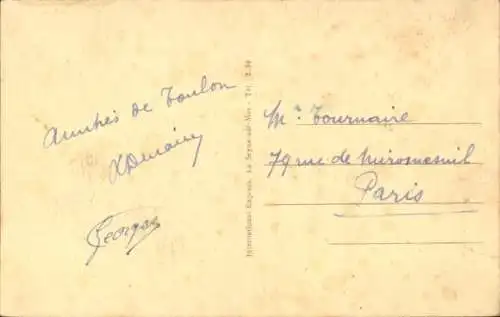 Amitiés de Toulon
Georges
International Express, La Seyne-sur-Mer - Tél. 2.50
Mr. Tournaire
79 rue de Miromesnil
Paris